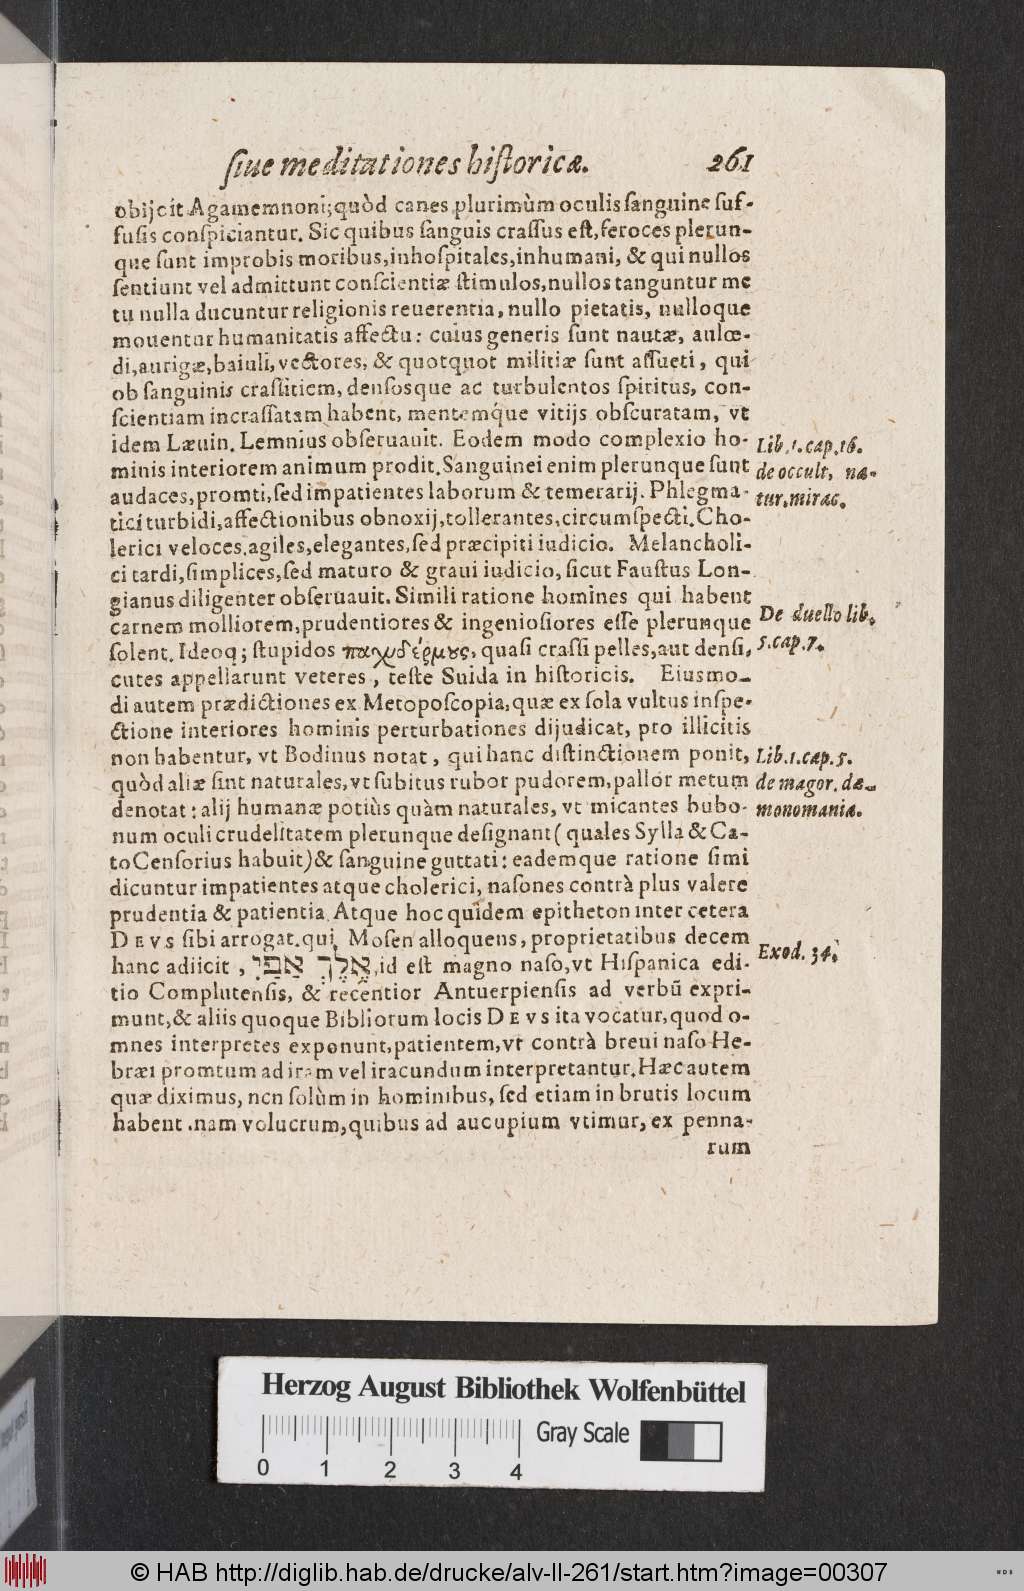 siue meditationes historicæ. 261
obijcit Agamemnoni; quòd canes plurimùm oculis sanguine suf-
fusis conspiciantur. Sic quibus sanguis crassus est, feroces plerun-
que sunt improbis moribus, inhospitales, inhumani, & qui nullos
sentiunt vel admittunt conscientiæ stimulos, nullos tanguntur me
tu nulla ducuntur religionis reuerentia, nullo pietatis, nulloque
mouentur humanitatis affectu: cuius generis sunt nautæ, aulœ-
di, aurigæ, baiuli, vectores, & quotquot militiæ sunt assueti, qui
ob sanguinis crassitiem, densosque ac turbulentos spiritus, con-
scientiam incrassatam habent, mentemque vitijs obscuratam, vt
idem Læuin. Lemnius obseruauit. Eodem modo complexio ho-
minis interiorem animum prodit. Sanguinei enim plerunque sunt
audaces, promti, sed impatientes laborum & temerarij. Phlegma-
tici turbidi, affectionibus obnoxij, tollerantes, circumspecti. Cho-
lerici veloces, agiles, elegantes, sed præcipiti iudicio. Melancholi-
ci tardi, simplices, sed maturo & graui iudicio, sicut Faustus Lon-
gianus diligenter obseruauit. Simili ratione homines qui habent
carnem molliorem, prudentiores & ingeniosiores esse plerunque
solent. Ideoq; stupidos παχυδέρμους, quasi crassi pelles, aut densi,
cutes appellarunt veteres, teste Suida in historicis. Eiusmo-
di autem prædictiones ex Metoposcopia, quæ ex sola vultus inspe-
ctione interiores hominis perturbationes dijudicat, pro illicitis
non habentur, vt Bodinus notat, qui hanc distinctionem ponit,
quòd aliæ sint naturales, vt subitus rubor pudorem, pallor metum
denotat: alij humanæ potiùs quàm naturales, vt micantes bubo-
num oculi crudelitatem plerunque designant (quales Sylla & Ca-
to Censorius habuit) & sanguine guttati: eademque ratione simi
dicuntur impatientes atque cholerici, nasones contrà plus valere
prudentia & patientia. Atque hoc quidem epitheton inter cetera
DEVS sibi arrogat, qui, Mosen alloquens, proprietatibus decem
hanc adiicit, אֶלֶךְ אַפַּי, id est magno naso, vt Hispanica edi-
tio Complutensis, & recentior Antuerpiensis ad verbū expri-
munt, & aliis quoque Bibliorum locis DEVS ita vocatur, quod o-
mnes interpretes exponunt, patientem, vt contrà breui naso He-
bræi promtum ad iram vel iracundum interpretantur. Hæc autem
quæ diximus, non solùm in hominibus, sed etiam in brutis locum
habent. nam volucrum, quibus ad aucupium vtimur, ex penna-
rum
Lib. 1. cap. 16.
de occult. na-
tur. mirac.
De duello lib.
5. cap. 7.
Lib. 1. cap. 5.
de magor. dæ-
monomania.
Exod. 34.
Herzog August Bibliothek Wolfenbüttel
Gray Scale
0 1 2 3 4
© HAB http://diglib.hab.de/drucke/alv-ll-261/start.htm?image=00307